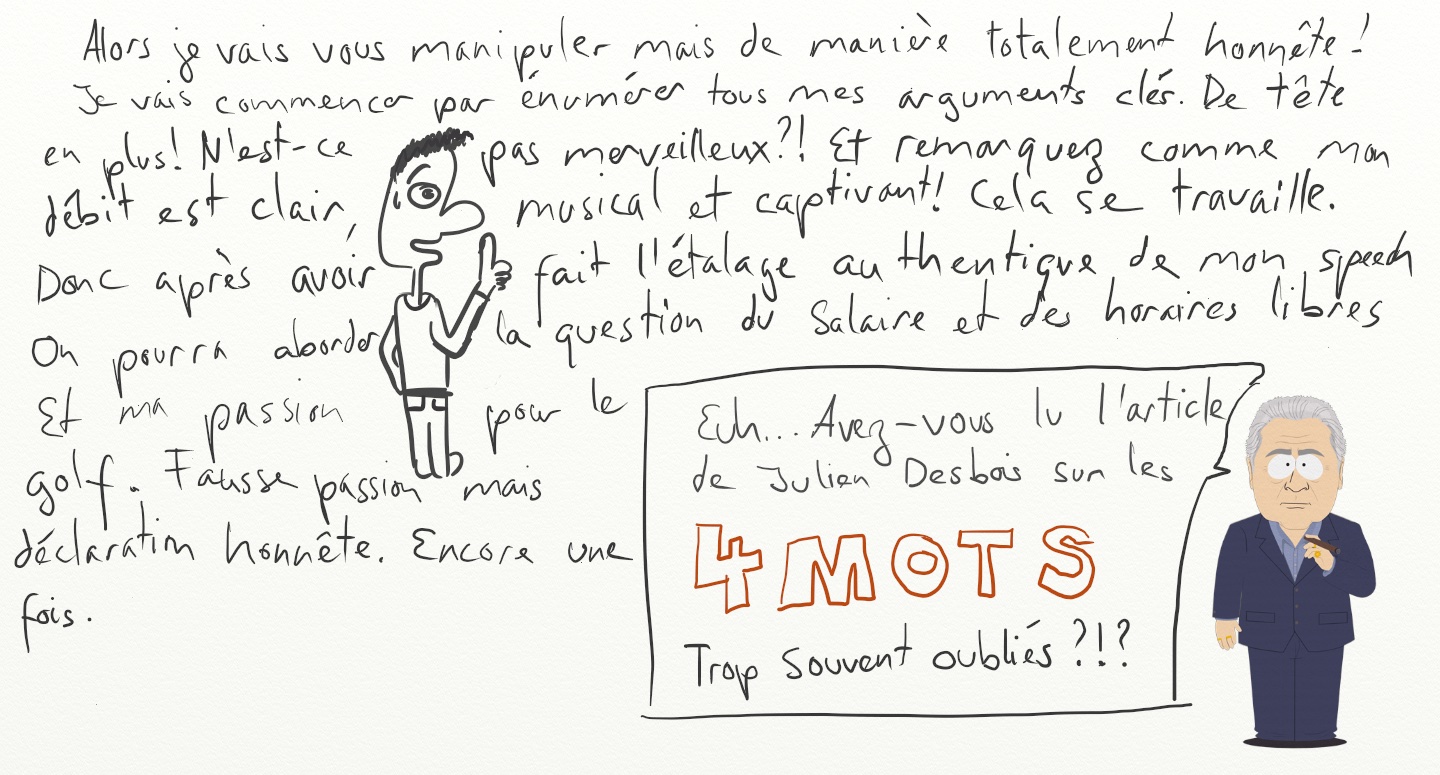 Alors je vais vous manipuler mais de manière totalement honnête !
Je vais commencer par énumérer tous mes arguments clés. De tête
en plus! N'est-ce pas merveilleux?! Et remarquez comme mon
débit est clair, musical et captivant! Cela se travaille.
Donc après avoir fait l'étalage authentique de mon speech
On pourra aborder la question du salaire et des horaires libres
Et ma passion pour le
golf. Fausse passion mais
déclaration honnête. Encore une
fois.
Euh... Avez-vous lu l'article
de Julien Desbois sur les
4 MOTS
Trop souvent oubliés ?!?